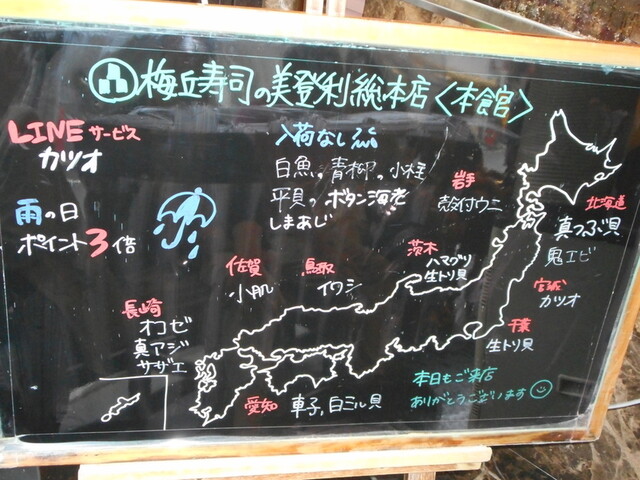 梅丘寿司の美登利総本店〈本館〉
LINEサービス
カツオ
雨の日
ポイント3倍
入荷なし
白魚。青柳。小柱
平貝。ボタン海老
しまあじ
岩手
殻付ウニ
北海道
真つぶ貝
鬼エビ
宮城
カツオ
茨木
ハマグリ
生トリ貝
千葉
生トリ貝
鳥取
イワシ
佐賀
小肌
長崎
オコゼ
真アジ
サザエ
愛知
車子,白ミル貝
本日もご来店
ありがとうございます